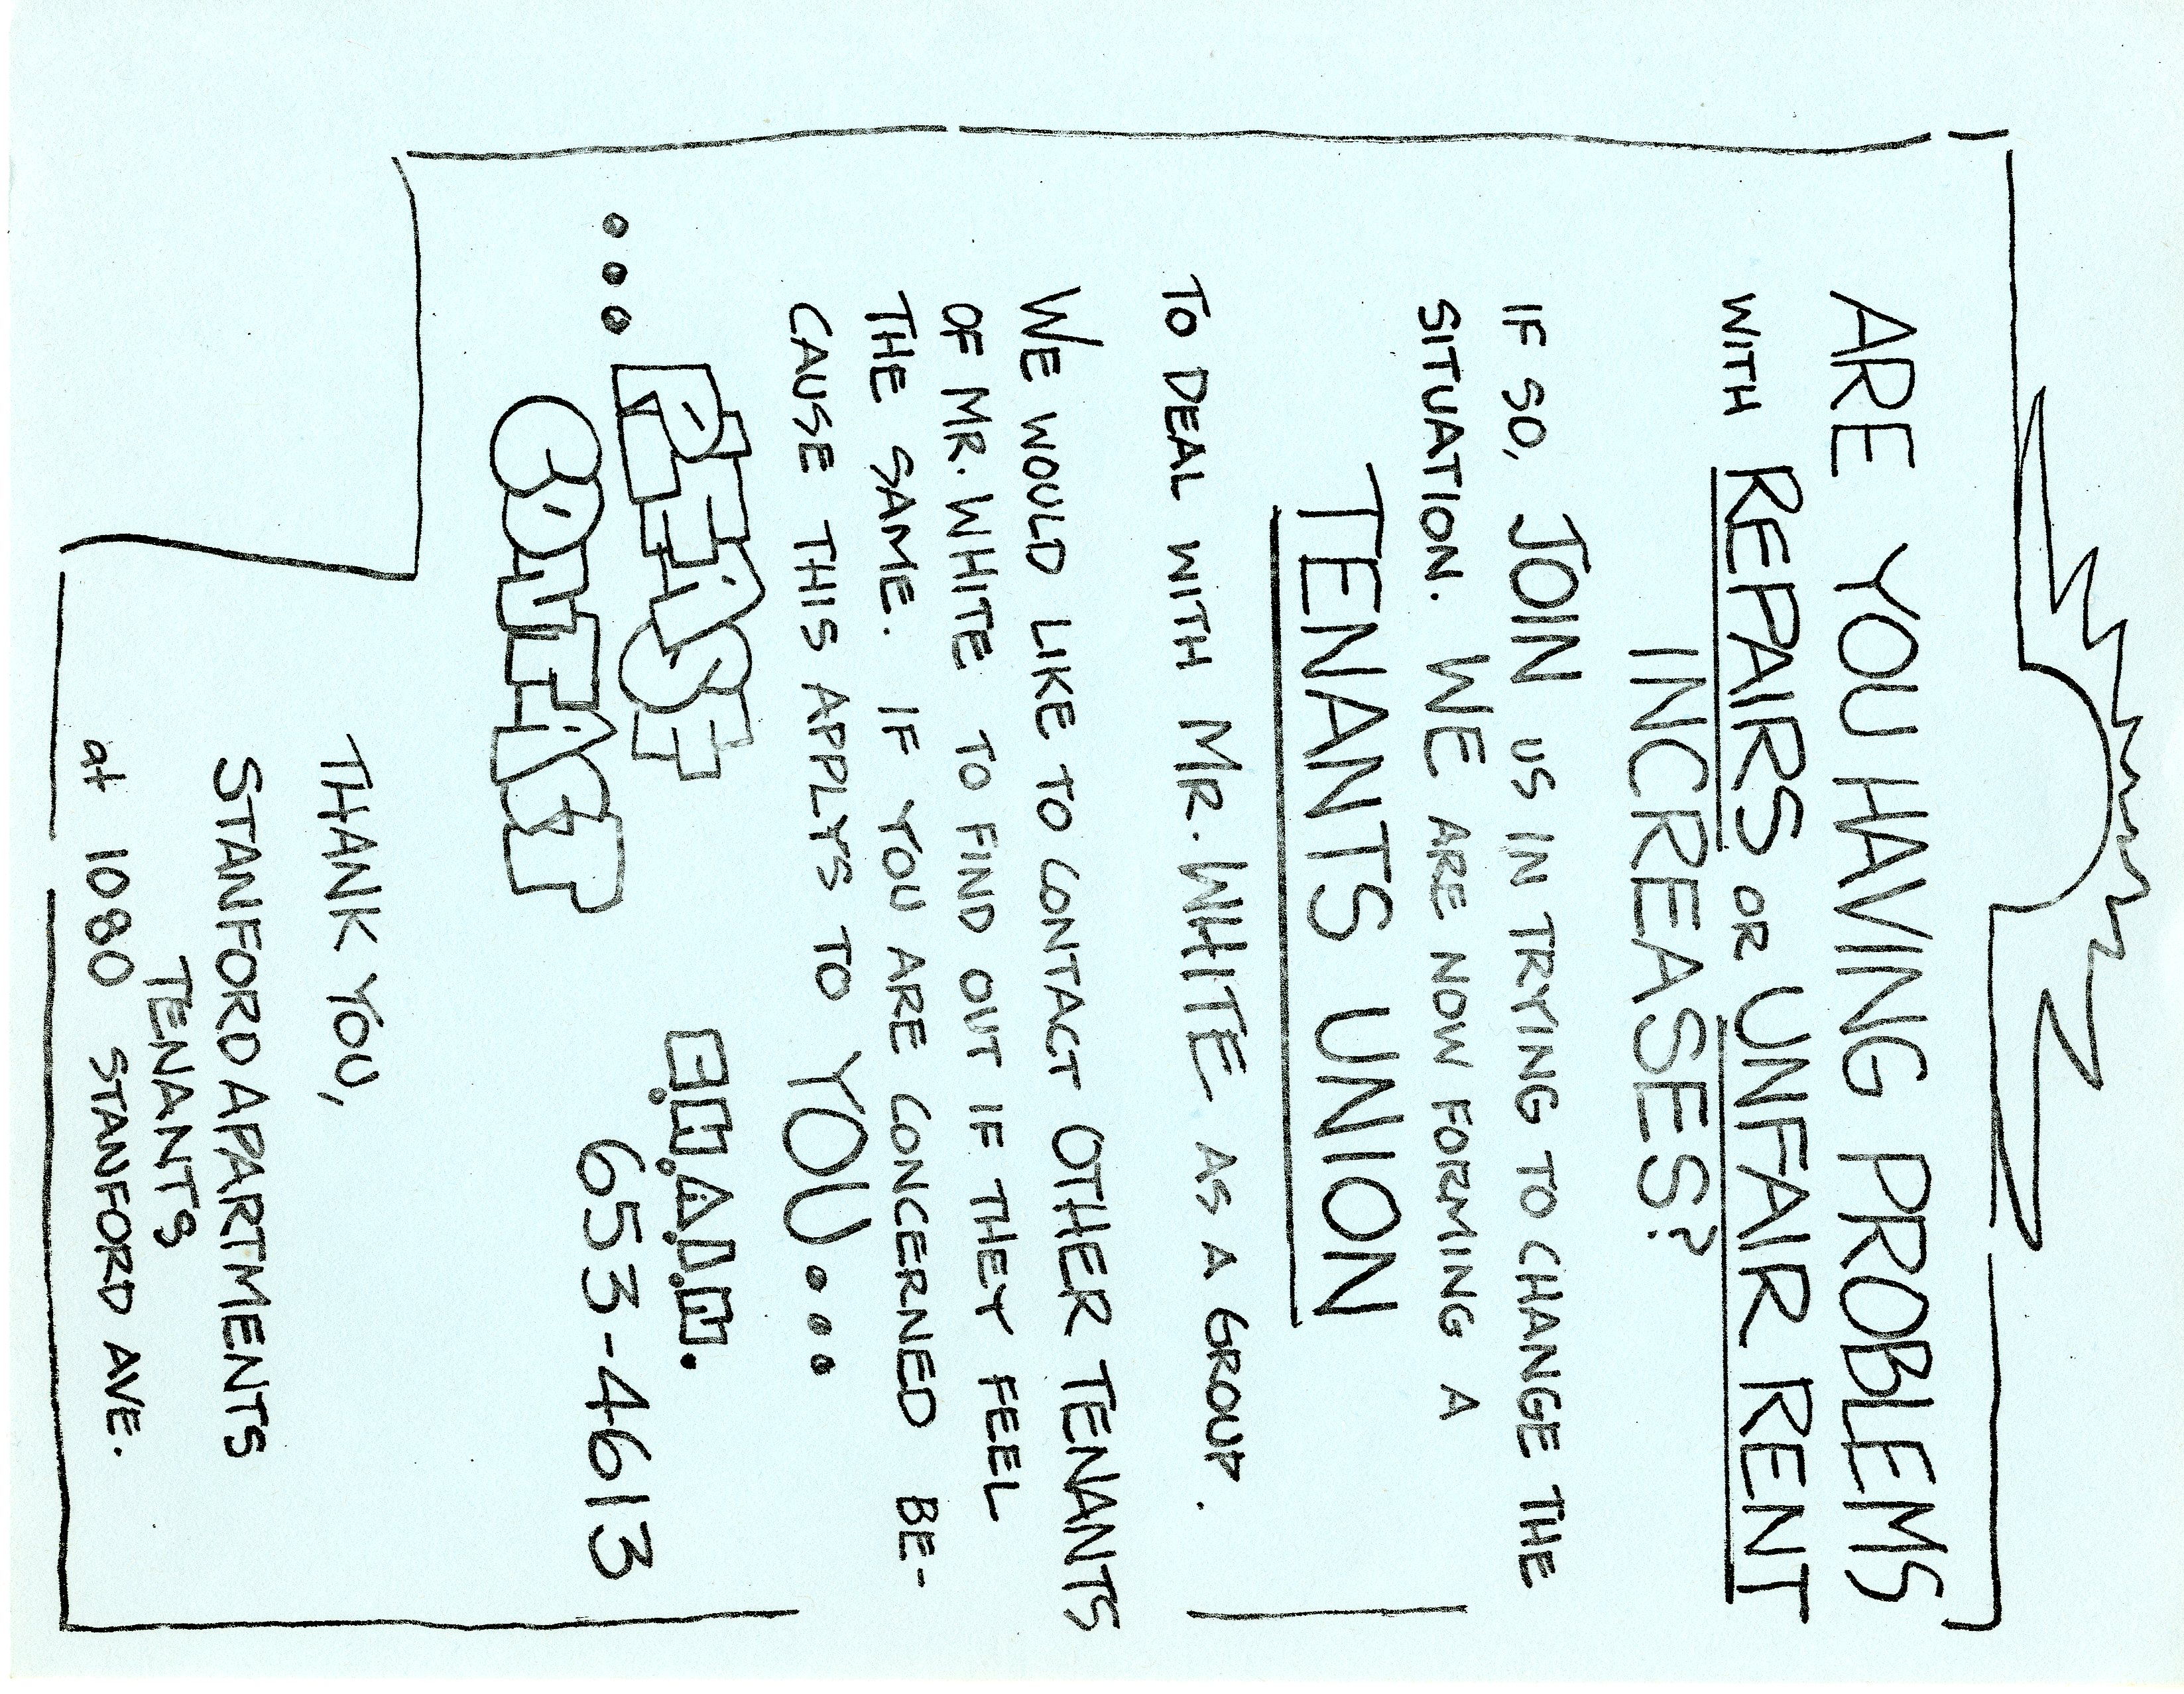 ARE YOU HAVING PROBLEMS
WITH REPAIRS OR UNFAIR RENT
INCREASES?
IF SO, JOIN US IN TRYING TO CHANGE THE
SITUATION. WE ARE NOW FORMING A
TENANTS UNION
TO DEAL WITH MR. WHITE AS A GROUP.
WE WOULD LIKE TO CONTACT OTHER TENANTS
OF MR. WHITE TO FIND OUT IF THEY FEEL
THE SAME. IF YOU ARE CONCERNED BE-
CAUSE THIS APPLYS TO YOU...
...PLEASE
CONTACT
C.H.A.I.N.
653-4613
THANK YOU,
STANFORD APARTMENTS
TENANTS
at 1080 STANFORD AVE.